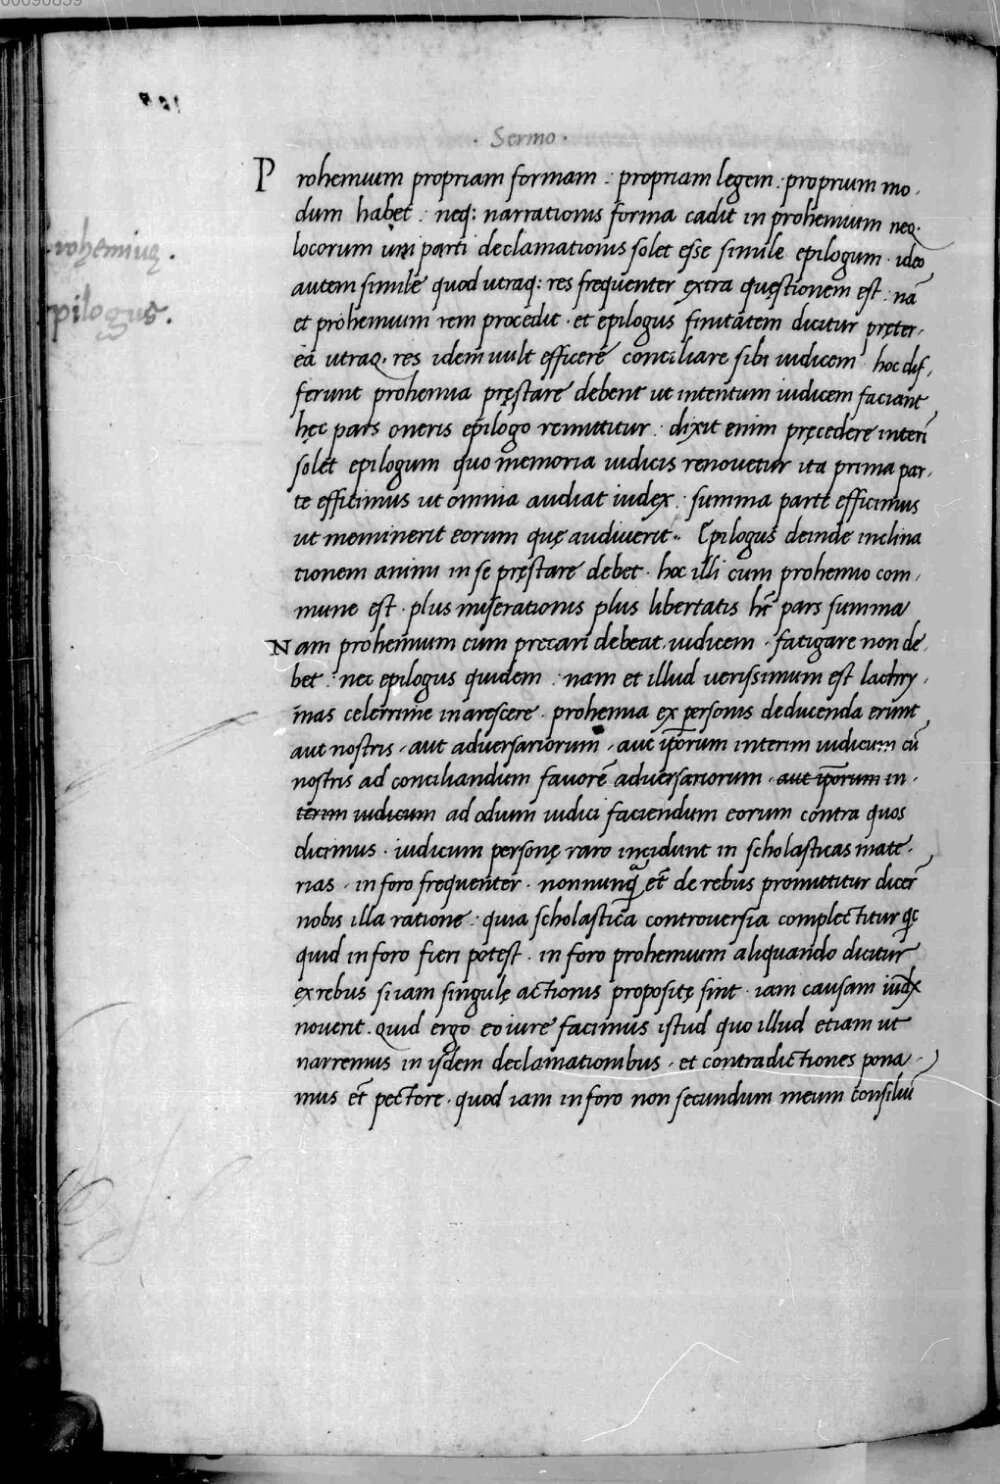 · Sermo ·
Prohemium propriam formam : propriam legem : proprium mo-
dum habet : neq: narrationis forma cadit in prohemium neq.
locorum uni parti declamationis solet esse simile epilogum · ideo
autem simile quod utraq: res frequenter extra quęstionem est : nā
et prohemium rem procedit · et epilogus finitatem dicitur pręter-
ea utraq. res idem uult efficere conciliare sibi iudicem hoc dif-
ferunt prohemia pręstare debent ut intentum iudicem faciant
hęc pars oneris epilogo remittitur : dixit enim pręcedere interī
solet epilogum quo memoria iudicis renouetur ita prima par-
te efficimus ut omnia audiat iudex : summa parte efficimus
ut meminerit eorum quę audiuerit·· Epilogus deinde inclina
tionem animi in se pręstare debet · hoc illi cum prohemio com-
mune est · plus miserationis plus libertatis hēt pars summa
Nam prohemium cum precari debeat iudicem · fatigare non de-
bet : nec epilogus quidem : nam et illud uerissimum est lachry-
mas celerrime inarescere · prohemia ex personis deducenda erunt
aut nostris · aut adversariorum · aut ip̄orum interim iudicum cū
nostris ad conciliandum fauorē adversariorum · aut ip̄orum in-
terim iudicum ad odium iudici faciendum eorum contra quos
dicimus · iudicum personę raro incidunt in scholasticas mate-
rias · in foro frequenter · nonnunq̄ et̄ de rebus promittitur dicer̄
nobis illa ratione : quia scholastica controuersia complectitur qc
quid in foro fieri potest · in foro prohemium aliquando dicitur
ex rebus si iam singulę actionis propositę sint · iam causam iūdx
nouerit · quid ergo eo iure facimus istud quo illud etiam ut
narremus in isdem declamationibus · et contradictiones pona-
mus et̄ pectore · quod iam in foro non secundum meum consiliū
rohęmiuȝ.
pilogus.